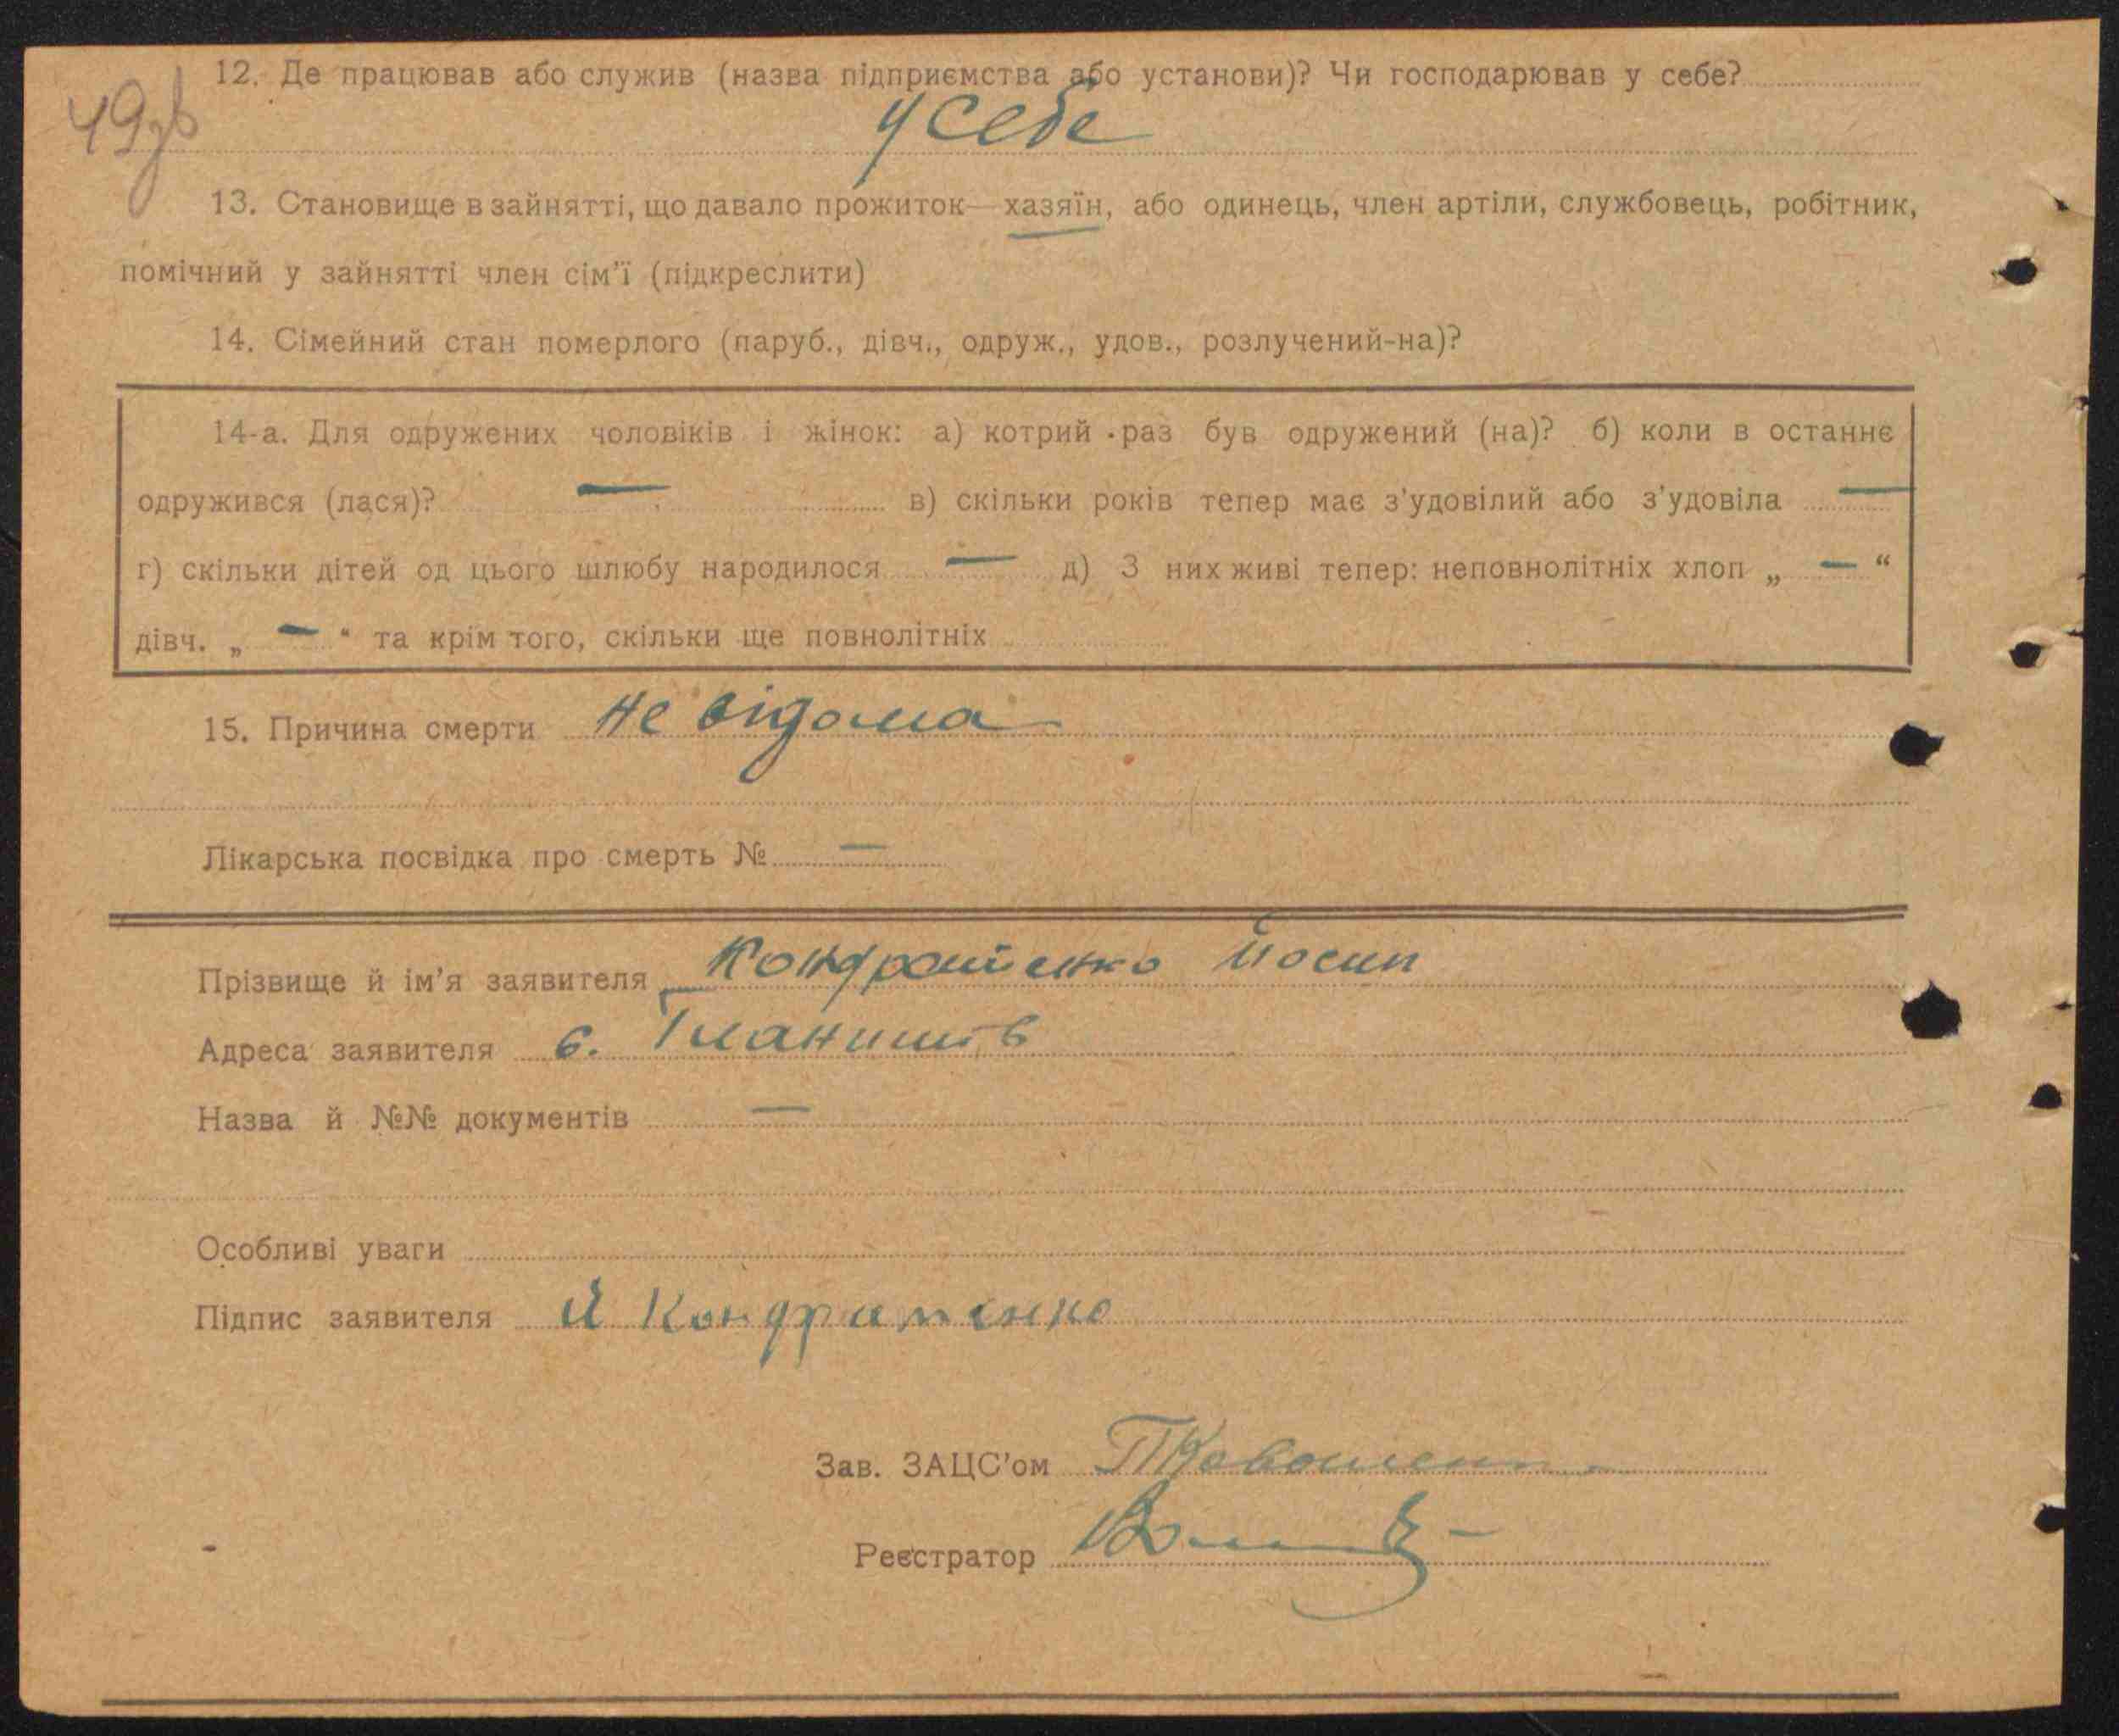 49зв
12. Де працював або служив (назва підприємства або установи)? Чи господарював у себе?
у себе
13. Становище в зайнятті, що давало прожиток—хазяїн, або одинець, член артіли, службовець, робітник,
помічний у зайнятті член сім'ї (підкреслити)
14. Сімейний стан померлого (паруб., дівч., одруж., удов., розлучений-на)?
14-а. Для одружених чоловіків і жінок: а) котрий раз був одружений (на)? б) коли в останнє
одружився (лася)? — в) скільки років тепер має з'удовілий або з'удовіла —
г) скільки дітей од цього шлюбу народилося — д) З них живі тепер: неповнолітніх хлоп „ — “
дівч. „ — “ та крім того, скільки ще повнолітніх
15. Причина смерти не відома
Лікарська посвідка про смерть № —
Прізвище й ім'я заявителя Кондратенко Йосип
Адреса заявителя с. Гланишів
Назва й №№ документів —
Особливі уваги
Підпис заявителя Й Кондратенко
Зав. ЗАЦС'ом
Реєстратор